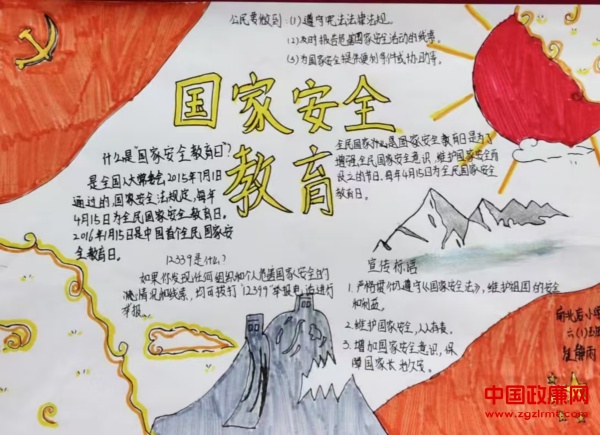 公民要做到:(1)遵守宪法法律法规。
(2)及时报告危害国家安全活动的线索。
(3)为国家安全提供便利条件或协助等。
国家安全
教育
什么是"国家安全教育日"?
是全国人大常委会2015年7月1日
通过的,国家安全法规定,每年
4月15日为全民国家安全教育日。
2016年4月15日是中国首个全民国家安
全教育日。
全民国家安全教育日是为了
增强全民国家安全意识,维护国家安全而
设立的节日。每年4月15日为全民国家安全
教育日。
12339是什么?
如果你发现任何组织和个人危害国家安全的
情况和线索,均可拨打"12339"举报电话进行
举报。
宣传标语
1.严格贯彻遵守《国家安全法》,维护祖国的安全
和利益。
2.维护国家安全,人人有责。
3.增加国家安全意识,保
障国家长治久安。
小学
六(1)班
中国政廉网
www.zgzlrmit.com